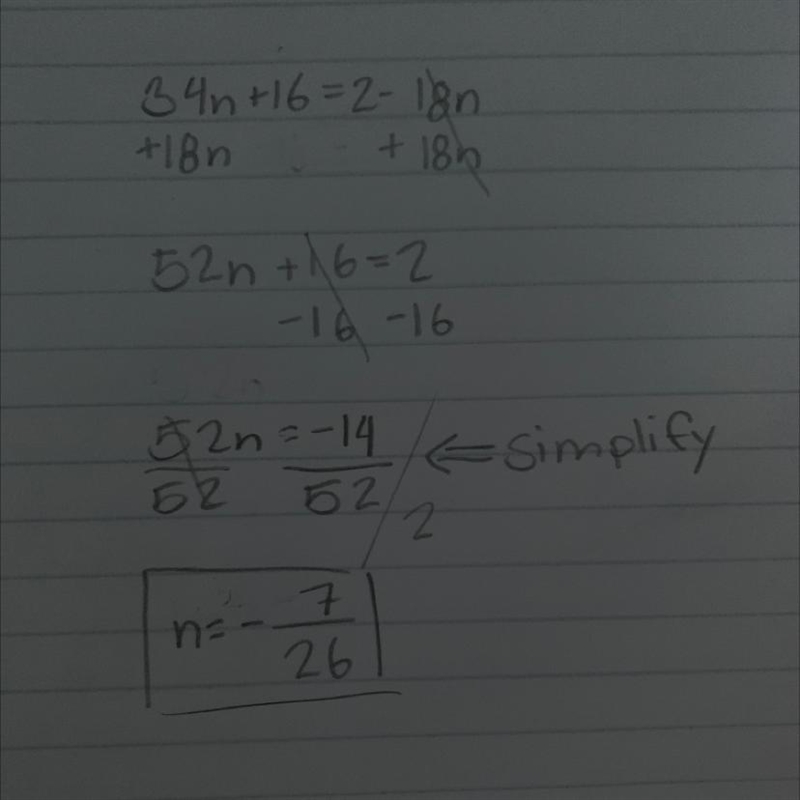 34n+16=2-18n
+18n + 18n
52n +16=2
-16 -16
52n = -14
52 52 / 2 <= simplify
n= - 7/26